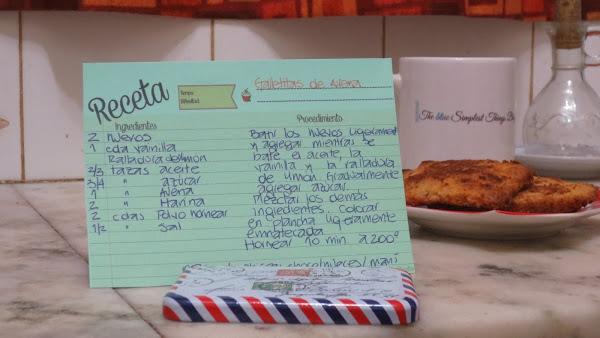 Receta
Tiempo:
Dificultad:
Galletitas de Avena
Ingredientes
2 Huevos
1 cda vainilla
Ralladura de limon
2/3 tazas aceite
3/4 " azucar
1 " Avena
2 " Harina
2 cdas Polvo hornear
1/2 " Sal
Procedimiento
Batir los huevos ligeramente
y agregar mientras se
bate el aceite, la
vainilla y la ralladura
de limon. Gradualmente
agregar azucar.
Mezclar los demás
ingredientes. Colocar
en plancha ligeramente
enmatecada.
Hornear 10 min. a 200°
/ maní
The blue Simplest Things